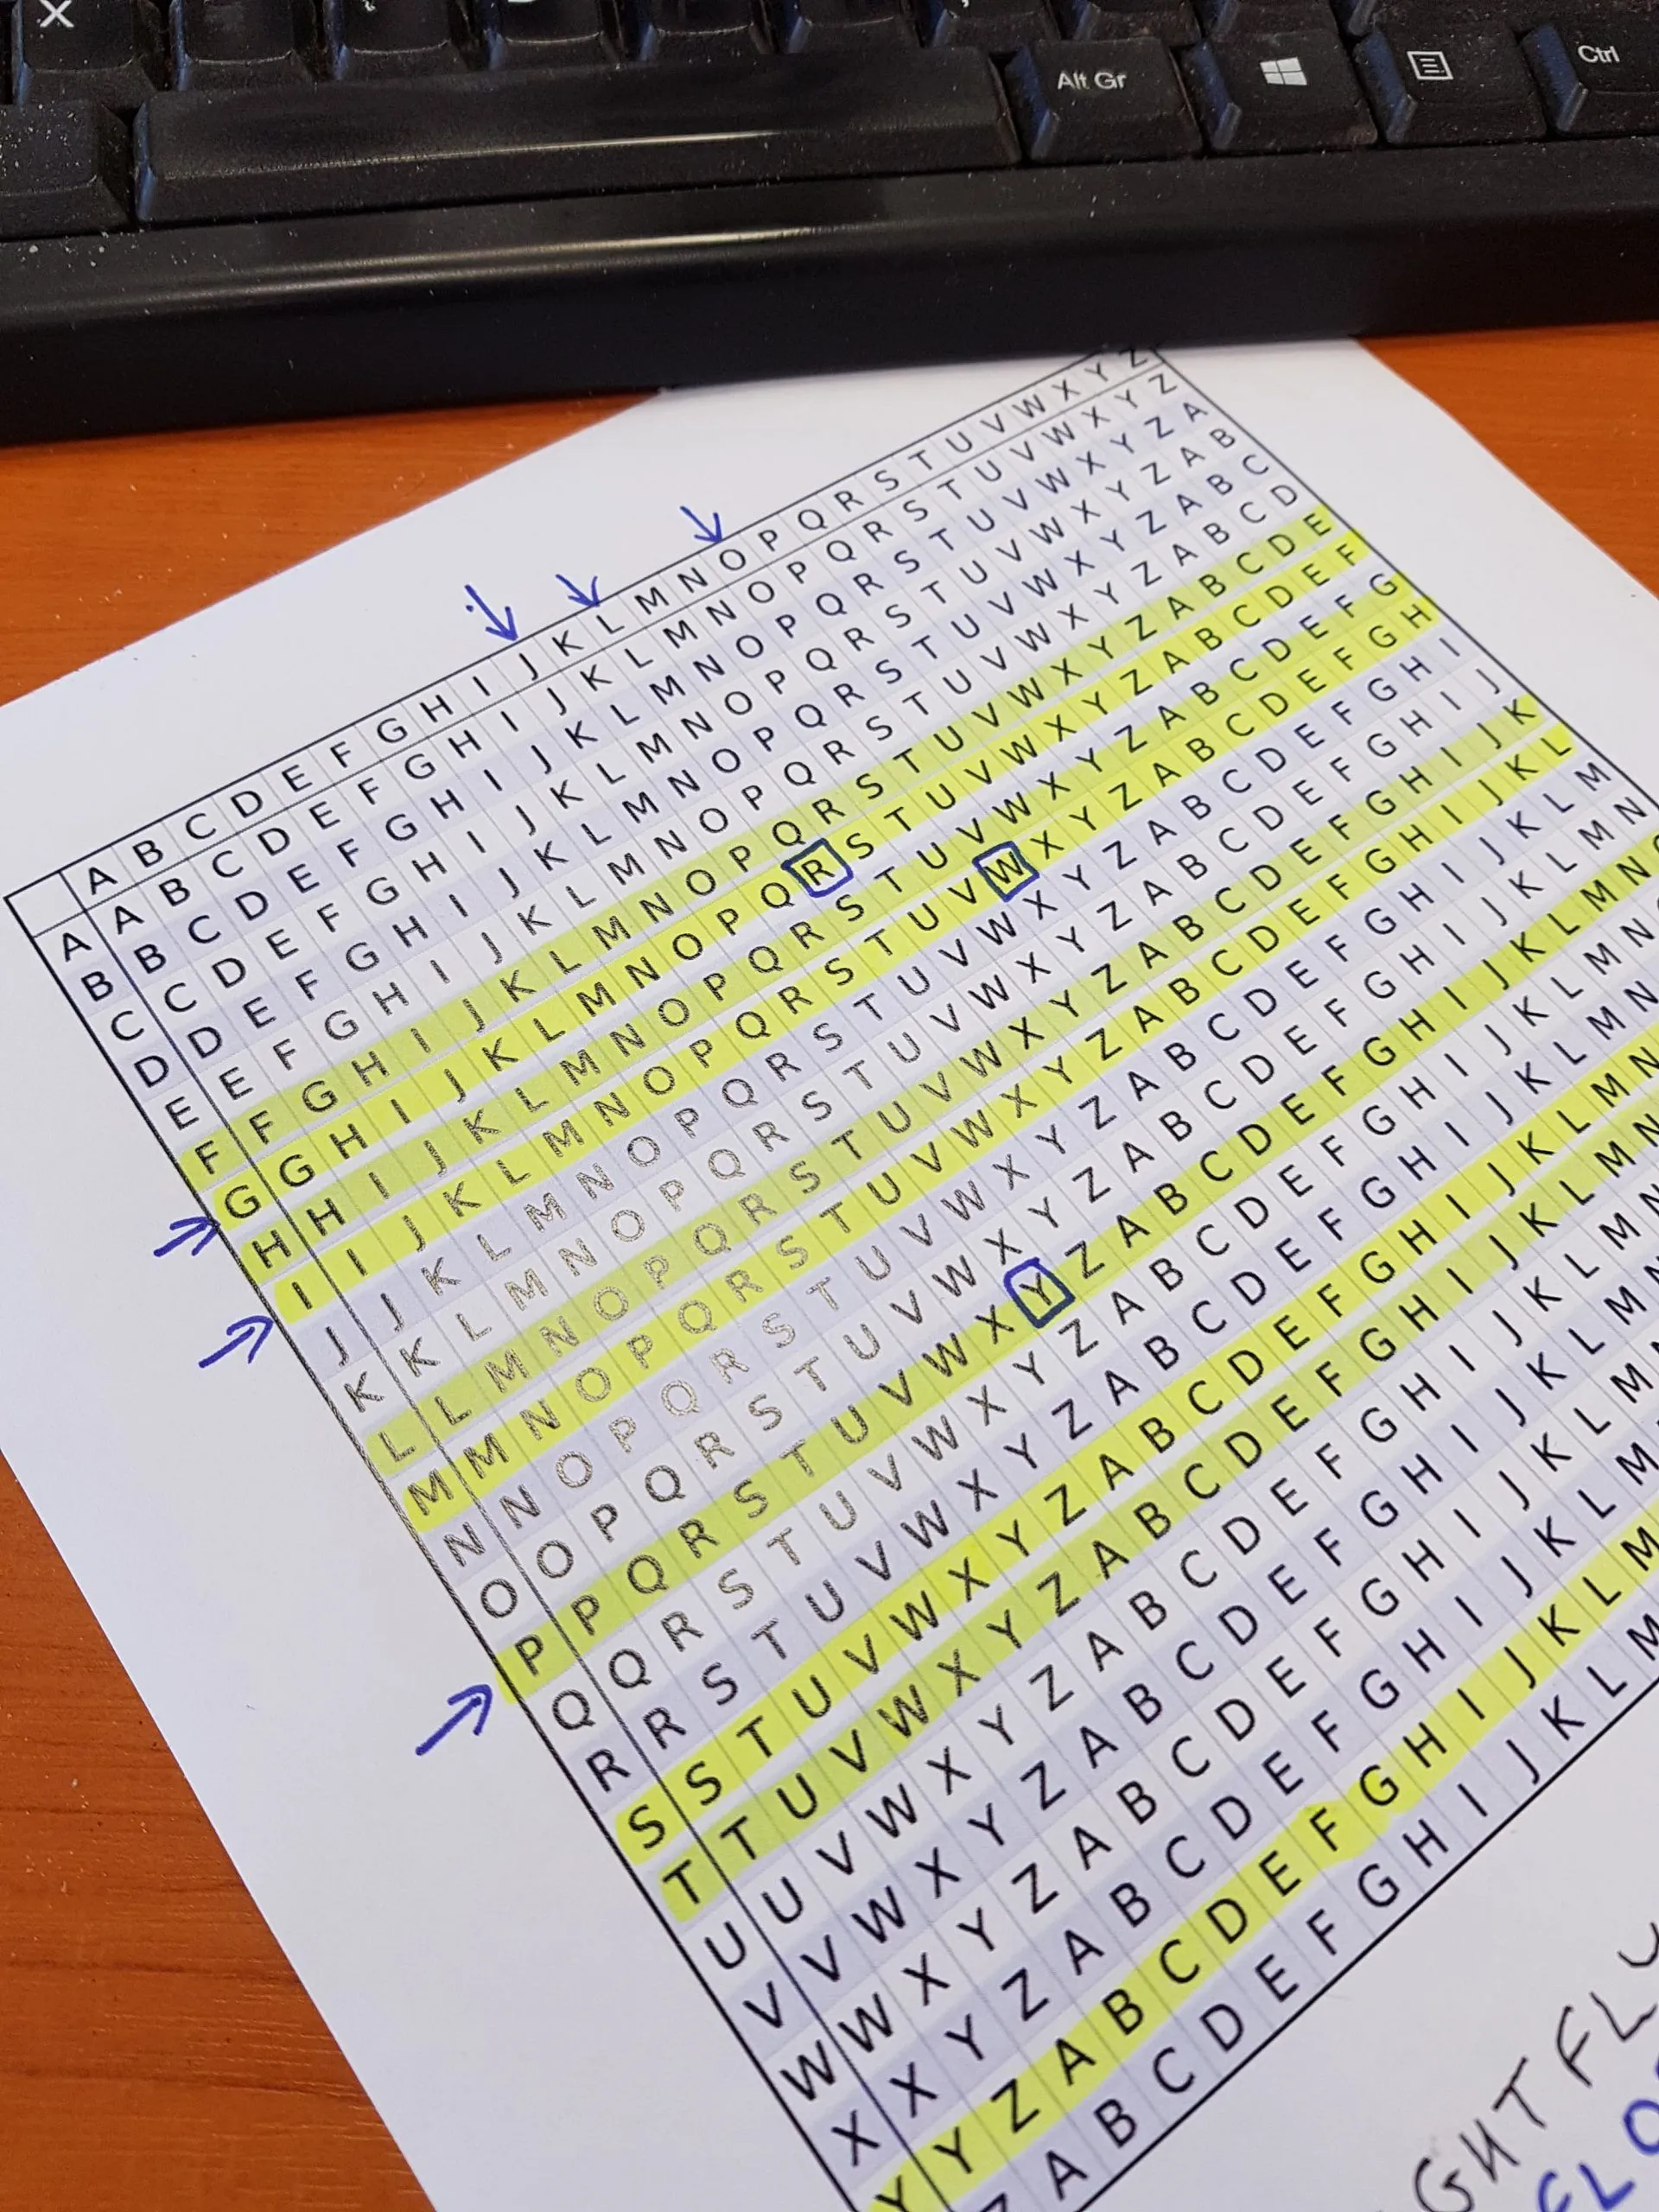 X
Alt Gr
Ctrl
A B C D E F G H I J K L M N O P Q R S T U V W X Y Z
A A B C D E F G H I J K L M N O P Q R S T U V W X Y Z
B B C D E F G H I J K L M N O P Q R S T U V W X Y Z A
C C D E F G H I J K L M N O P Q R S T U V W X Y Z A B
D D E F G H I J K L M N O P Q R S T U V W X Y Z A B C
E E F G H I J K L M N O P Q R S T U V W X Y Z A B C D
F F G H I J K L M N O P Q R S T U V W X Y Z A B C D E
G G H I J K L M N O P Q R S T U V W X Y Z A B C D E F
H H I J K L M N O P Q R S T U V W X Y Z A B C D E F G
I I J K L M N O P Q R S T U V W X Y Z A B C D E F G H
J J K L M N O P Q R S T U V W X Y Z A B C D E F G H I
K K L M N O P Q R S T U V W X Y Z A B C D E F G H I J
L L M N O P Q R S T U V W X Y Z A B C D E F G H I J K
M M N O P Q R S T U V W X Y Z A B C D E F G H I J K L
N N O P Q R S T U V W X Y Z A B C D E F G H I J K L M
O O P Q R S T U V W X Y Z A B C D E F G H I J K L M N
P P Q R S T U V W X Y Z A B C D E F G H I J K L M N
Q Q R S T U V W X Y Z A B C D E F G H I J K L M N
R R S T U V W X Y Z A B C D E F G H I J K L M N
S S T U V W X Y Z A B C D E F G H I J K L M N
T T U V W X Y Z A B C D E F G H I J K L M N
U U V W X Y Z A B C D E F G H I J K L M N
V V W X Y Z A B C D E F G H I J K L M N
W W X Y Z A B C D E F G H I J K L M
X X Y Z A B C D E F G H I J K L M
Y Y Z A B C D E F G H I J K L M
Z A B C D E F G H I J K L M
GHTFL
FLO